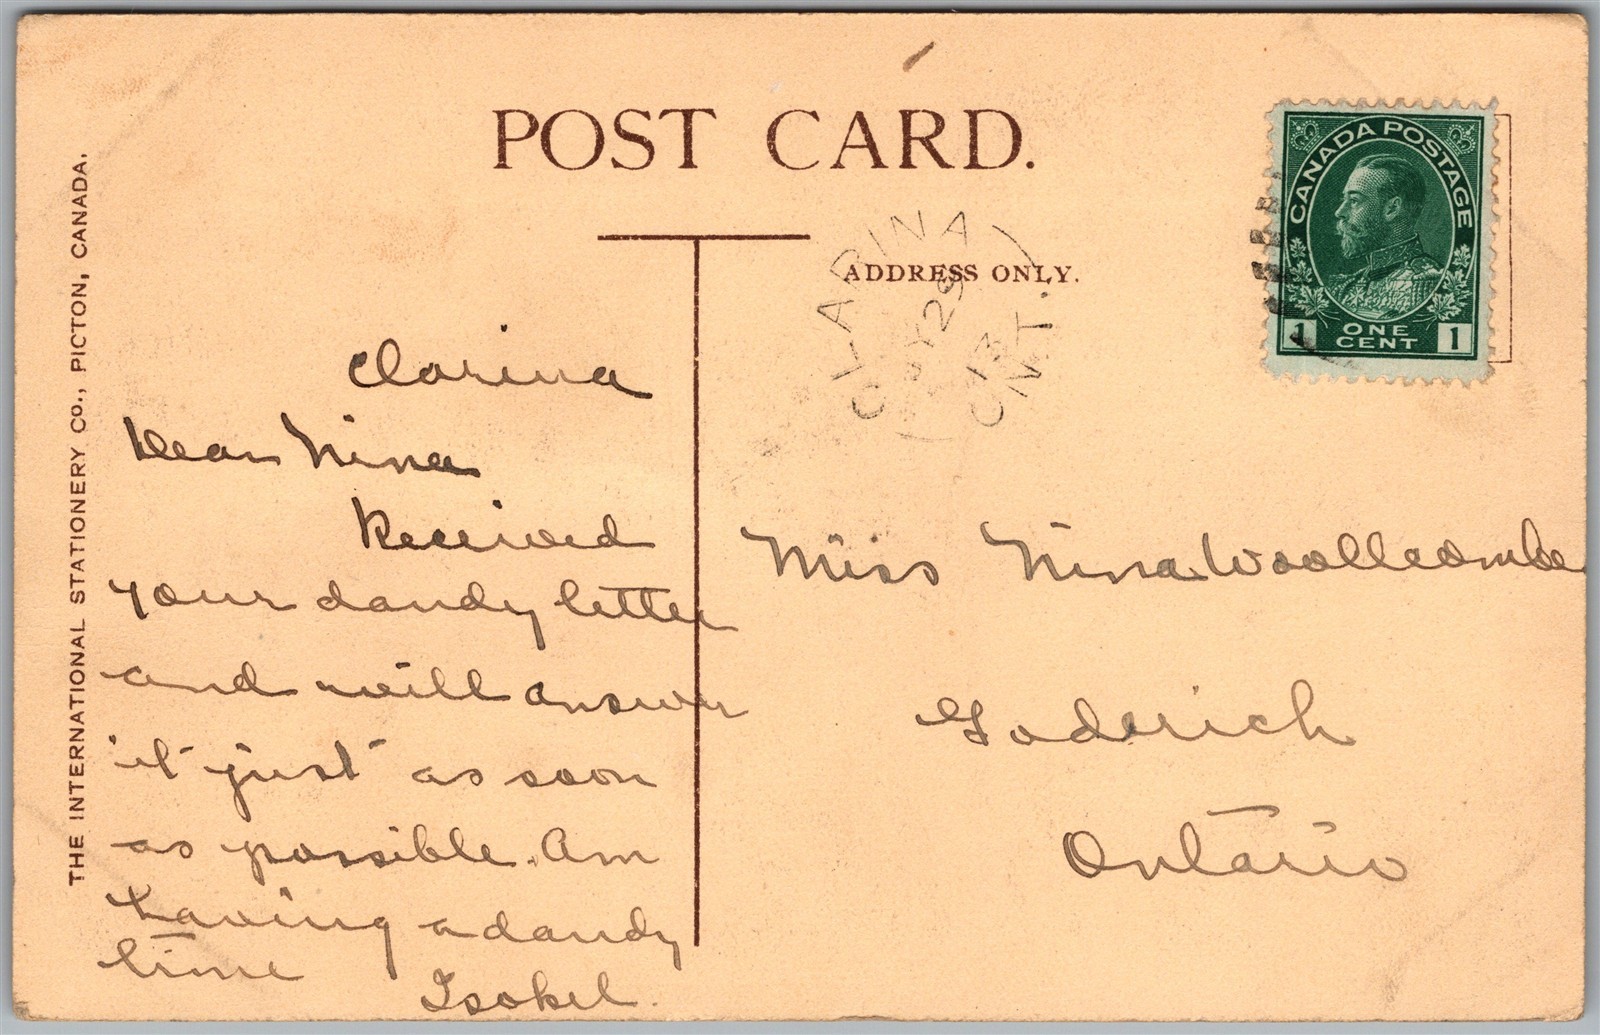 POST CARD.
ADDRESS ONLY.
THE INTERNATIONAL STATIONERY Co., PICTON, CANADA.
CANADA POSTAGE
1 ONE CENT 1
CLARINA
JY 29
13
ONT.
Clarina
Dear Nina
Received
your dandy letter
and will answer
it just as soon
as possible. Am
having a dandy
time
Isobel.
Miss Nina Woollcombe
Goderich
Ontario